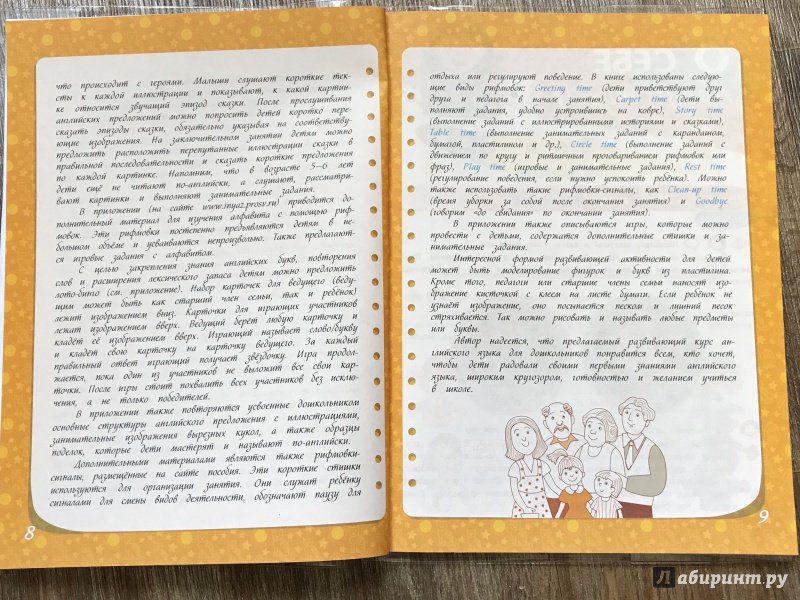 что происходит с героями. Малыши слушают короткие тек-
сты к каждой иллюстрации и показывают, к какой картин-
ке относится звучащий эпизод сказки. После прослушивания
английских предложений можно попросить детей коротко пере-
сказать эпизоды сказки, обязательно указывая на соответству-
ющие изображения. На заключительном занятии детям можно
предложить расположить перепутанные иллюстрации сказки в
правильной последовательности и сказать короткие предложения
по каждой картинке. Напомним, что в возрасте 5–6 лет
дети ещё не читают по-английски, а слушают, рассматри-
вают картинки и выполняют занимательные задания.
В приложении (на сайте www.inyaz.prosv.ru) приводится до-
полнительный материал для изучения алфавита с помощью риф-
мовок. Эти рифмовки постепенно предъявляются детям в не-
большом объёме и усваиваются непроизвольно. Также предлагают-
ся игровые задания с алфавитом.
С целью закрепления знания английских букв, повторения
слов и расширения лексического запаса детям можно предложить
лото-бинго (см. приложение). Набор карточек для ведущего (веду-
щим может быть как старший член семьи, так и ребёнок)
лежит изображением вниз. Карточки для играющих участников
лежат изображением вверх. Ведущий берёт любую карточку и
кладёт её изображением вверх. Играющий называет слово/букву
и кладёт свою карточку на карточку ведущего. За каждый
правильный ответ играющий получает звёздочку. Игра продол-
жается, пока один из участников не выложит все свои кар-
точки. После игры стоит похвалить всех участников без исклю-
чения, а не только победителей.
В приложении также повторяются усвоенные дошкольником
основные структуры английского предложения с иллюстрациями,
занимательные изображения вырезных кукол, а также образцы
поделок, которые дети мастерят и называют по-английски.
Дополнительными материалами являются также рифмовки-
сигналы, размещённые на сайте пособия. Эти короткие стишки
используются для организации занятия. Они служат ребёнку
сигналами для смены видов деятельности, обозначают паузу для
8
отдыха или регулируют поведение. В книге использованы следую-
щие виды рифмовок: Greeting time (дети приветствуют друг
друга и педагога в начале занятия), Carpet time (дети вы-
полняют задания, удобно устроившись на ковре), Story time
(выполнение заданий с иллюстрированными историями и сказками),
Table time (выполнение занимательных заданий с карандашом,
бумагой, пластилином и др.), Circle time (выполнение заданий с
движением по кругу и ритмичным проговариванием рифмовок или
фраз), Play time (игровые и занимательные задания), Rest time
(регулирование поведения, если нужно успокоить ребёнка). Можно
также использовать такие рифмовки-сигналы, как Clean-up time
(время уборки за собой после окончания занятия) и Goodbye
(говорим «до свидания» по окончании занятия).
В приложении также описываются игры, которые можно
провести с детьми, содержатся дополнительные стишки и за-
нимательные задания.
Интересной формой развивающей активности для детей
может быть моделирование фигурок и букв из пластилина.
Кроме того, педагоги или старшие члены семьи наносят изо-
бражение кисточкой с клеем на листе бумаги. Если ребёнок не
узнаёт изображение, оно посыпается песком и лишний песок
стряхивается. Так можно рисовать и называть любые предметы
или буквы.
Автор надеется, что предлагаемый развивающий курс ан-
глийского языка для дошкольников понравится всем, кто хочет,
чтобы дети радовали своими первыми знаниями английского
языка, широким кругозором, готовностью и желанием учиться
в школе.
9
Лабиринт.ру